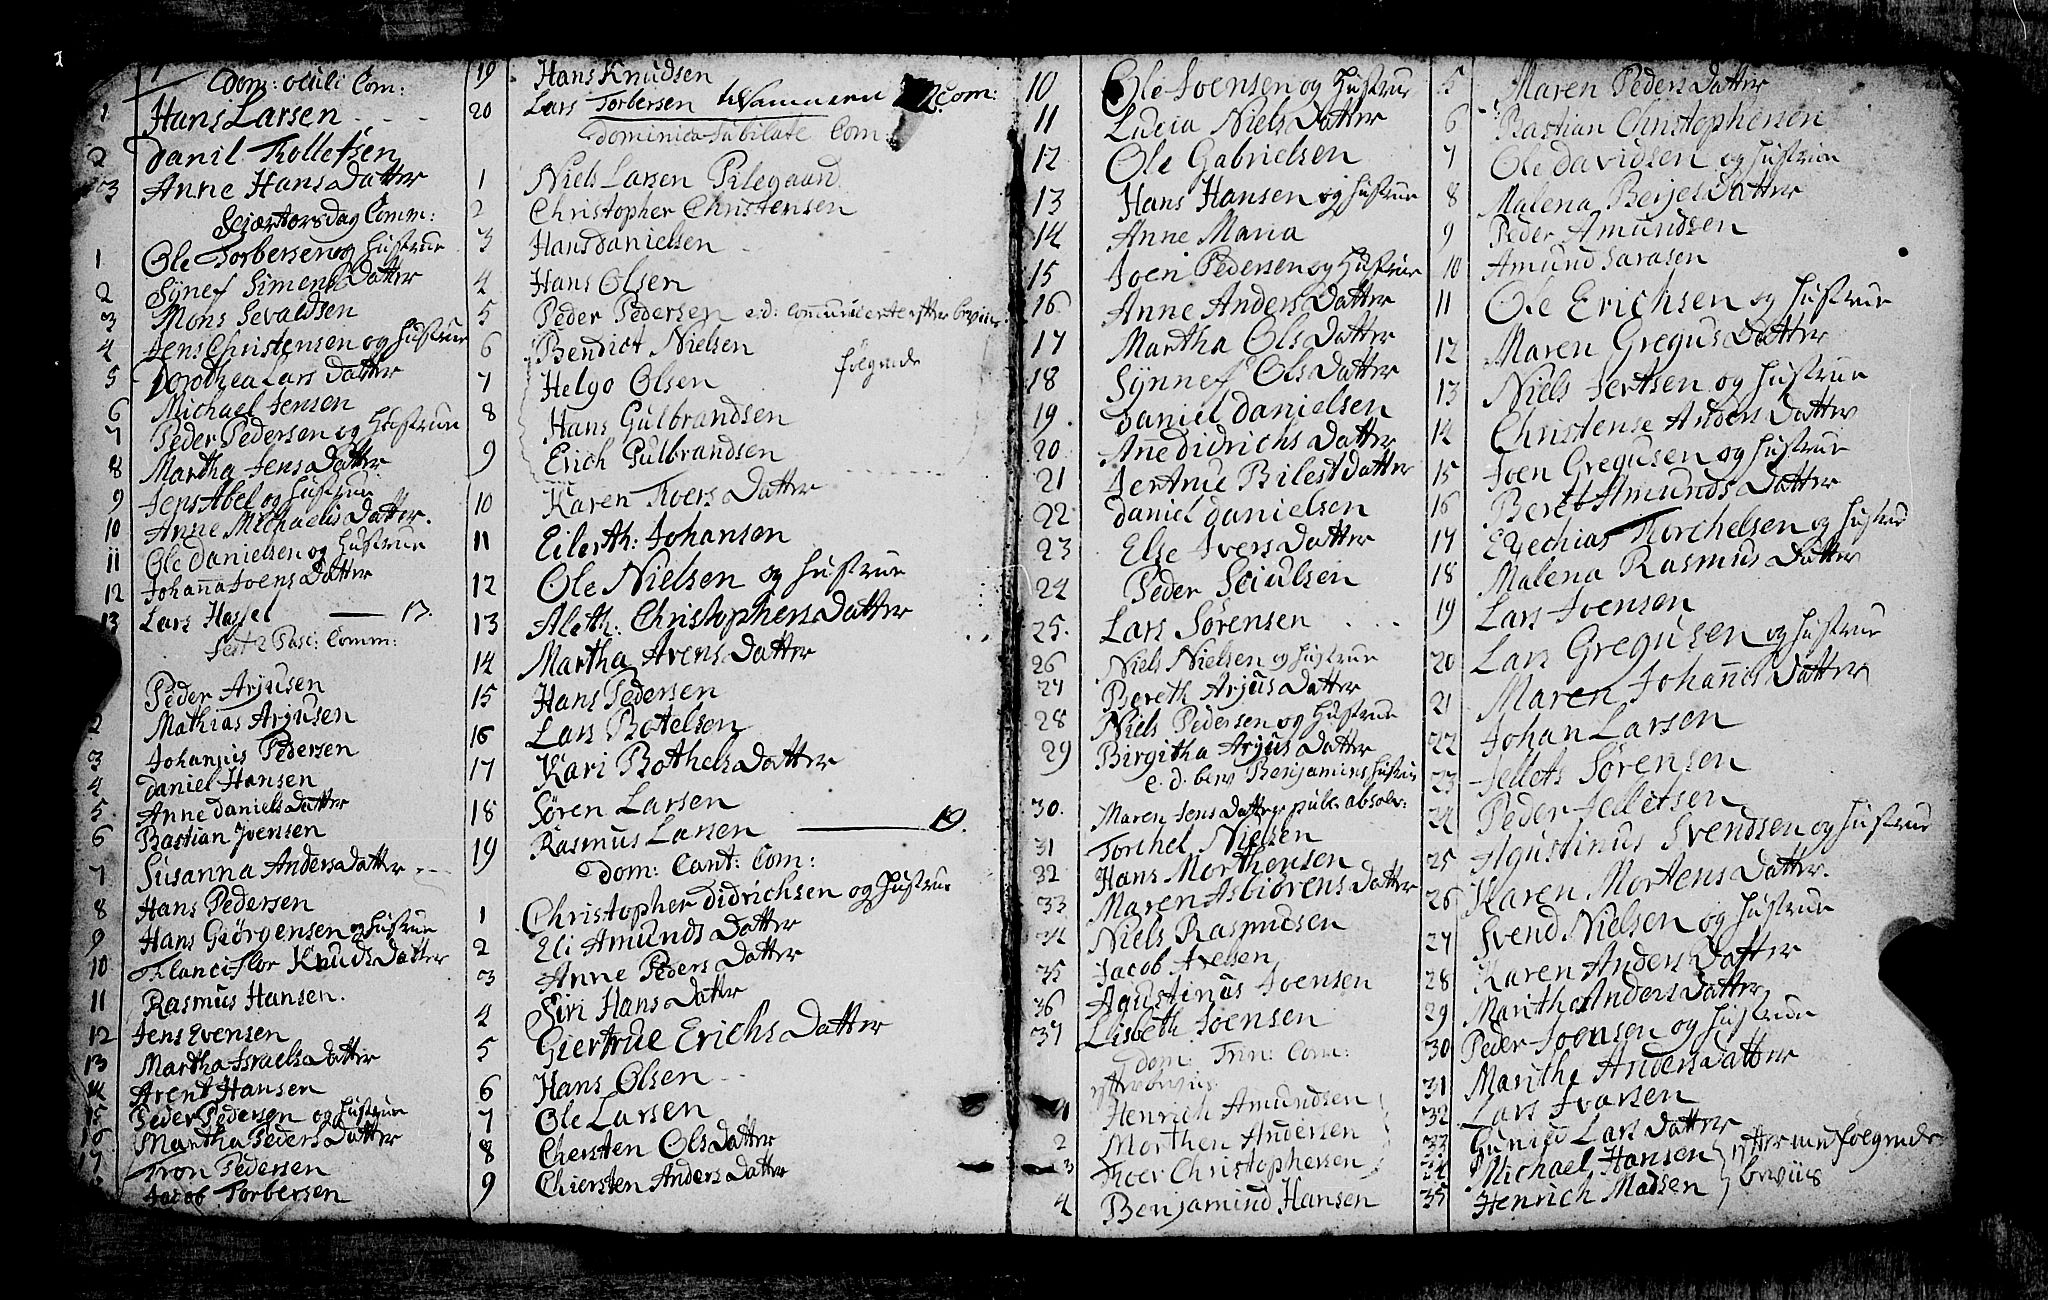 Dom: oculi Com:
1 Hans Larsen
2 Danil Tolletsen
3 Anne HansDatter
Scjærtorsdag Comm:
1 Ole Torbersen og hustrue
2 Synef SimensDatter
3 Mons Sevaldsen
4 Jens Christensen og hustrue
5 Dorothea Lars Datter
6 Michael Jensen
7 Peder Pedersen og hustrue
8 Martha JensDatter
9 Jens Abel og hustrue
10 Anne MichaelisDatter.
11 Ole Danielsen og hustrue
12 Johanna JoensDatter
13 Lars Hassel — 13.
Fest 2 Pasc: Comm:
Peder Arjusen
2 Mathias Arjusen
3 Johannis Pedersen
4 Daniel Hansen
5 Anne DanielsDatter
6 Bastian Joensen
7 Susanna AndersDatter
8 Hans Pedersen
9 Hans Giörgensen og hustrue
10 KnudsDatter
11 Rasmus Hansen.
12 Jens Evensen
13 Martha IsraelsDatter
14 Arent Hansen
15 Peder Pedersen og hustrue
16 Martha PedersDatter
17 Tron Pedersen
Jacob Torbersen
19 Hans Knudsen
20 Lars Torbersen Com:
Dominica Jubilate Com:
1 Niels Larsen Pilegaard
2 Christopher Christensen
3 Hans Danielsen
4 Hans Olsen
5 Peder Pedersen e.d: Communicerte efter beviis
6 Bendict Nielsen
følgende
7 Helgo Olsen
8 Hans Gulbrandsen
9 Erich Gulbrandsen
10 Karen ToersDatter
11 Eilerth: Johansen
12 Ole Nielsen og hustrue
13 Aleth: ChristophersDatter
14 Martha ArensDatter
15 Hans Pedersen
16 Lars Botelsen
17 Kari BothelsDatter
18 Sören Larsen
19 Rasmus Larsen — 19.
Dom: Cant: Com:
1 Christopher Didrichsen og hustrue
2 Eli AmundsDatter
3 Anne PedersDatter
4 Siri HansDatter
5 Giertrue ErichsDatter
6 Hans Olsen
7 Ole Larsen
8 Chersten OlsDatter
9 Chiersten AndersDatter
10 Ole Joensen og hustrue
11 Lucia NielsDatter
12 Ole Gabrielsen
13 Hans Hansen og hustrue
14 Anne Maria
15 Joen Pedersen og hustrue
16 Anne AndersDatter
17 Martha OlsDatter
18 Synnef OlsDatter
19 Daniel Danielsen
20 Anne DidrichsDatter
21 Jertrue BilestDatter
22 Daniel Danielsen
23 Else IversDatter
24 Peder Sciulsen
25. Lars Sörensen
26 Niels Nielsen og hustrue
27 Bereth ArjusDatter
28 Niels Pedersen og hustrue
29 Birgitha ArjusDatter
e. d. bev Benjamins hustrue
30. Maren JensDatter publ: absolv:
31 Torchel Nielsen
32 Hans Morthensen
33 Maren AsbiörensDatter
34 Niels Rasmusen
35 Jacob Axelsen
36 Agustinus Joensen
37 Lisbeth Joensen
Dom: Trin: Com:
efter beviis
1 Henrich Amundsen
2 Morthen Andersen
3 Toer Christophersen
4 Benjamind Hansen
5 Maren PedersDatter
6 Bastian Christophersen
7 Ole Davidsen og hustrue
8 Malena BerjesDatter
9 Peder Amundsen
10 Amund Sarasen
11 Ole Erichsen og hustrue
12 Maren GregusDatter
13 Niels Jertsen og hustrue
14 Christense AndersDatter
15 Joen Gregusen og hustrue
16 Beret AmundsDatter
17 Ezechias Torchelsen og hustrue
18 Malena RasmusDatter
19 Lars Joensen
20 Lars Gregusen og hustrue
21 Maren JohannisDatter
22 Johan Larsen
23 Tellefs Sörensen
24 Peder Tellefsen
25 Agustinus Svendsen og hustrue
26 Karen MortensDatter.
27 Svend Nielsen og hustrue
28 Karen AndersDatter
29 Maritha AndersDatter
30 Peder Joensen og hustrue
31 Maritha AndersDatter
32 Lars Ivarsen
33 Gunild LarsDatter
34 Michael Hansen } efter medfølgende
35 Henrich Madsen } beviis